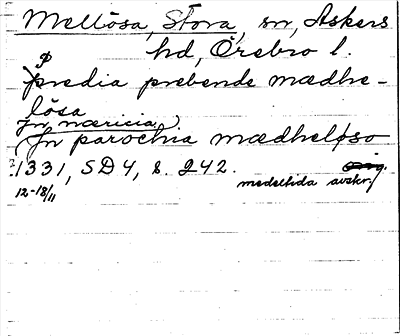 Mellösa, Stora, sn, Askers
hd, Örebro l.
predia prebende mædhe-
lösa
Jn næricia)
Jn parochia mædheløso
1331, SD4, s. 242. orig.
12-18/11 medeltida avskr.